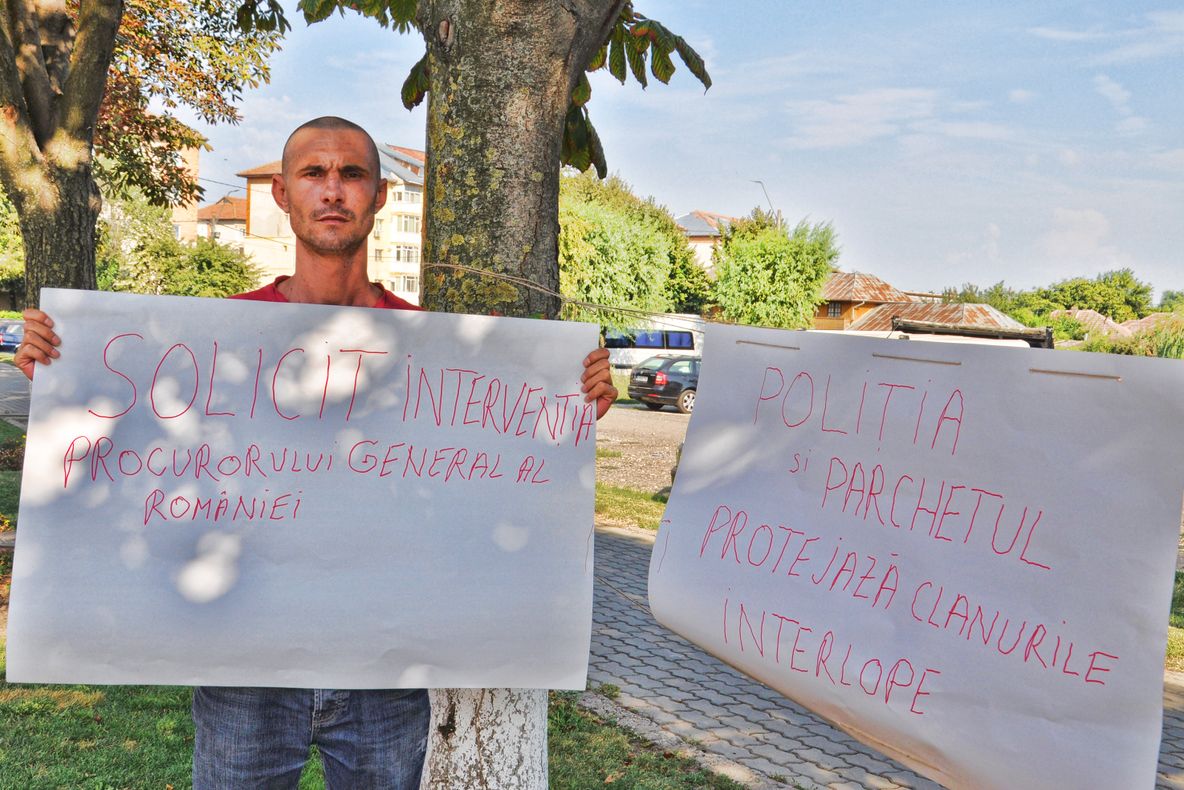 SOLICIT INTERVENȚIA
PROCURORULUI GENERAL AL
ROMÂNIEI
POLIȚIA
și PARCHETUL
PROTEJAZĂ CLANURILE
INTERLOPE